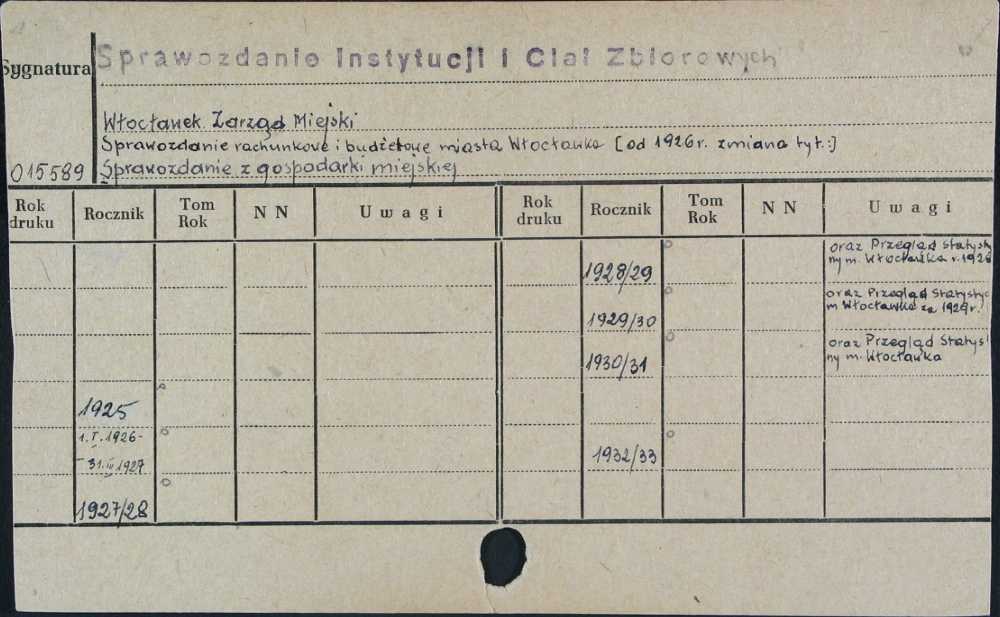 Sprawozdanie Instytucji i Ciał Zbiorowych
Sygnatura
Włocławek Zarząd Miejski
Sprawozdanie rachunkowe i budżetowe miasta Włocławka [od 1926 r. zmiana tyt:]
015589 Sprawozdanie z gospodarki miejskiej
Rok druku Rocznik Tom Rok N N Uwagi Rok druku Rocznik Tom Rok N N Uwagi
oraz Przegląd Statysty
1928/29 ny m. Włocławka r. 1928
oraz Przegląd Statystycz
1929/30 m Włocławka za 1929 r.
oraz Przegląd Statys
1930/31 ny m. Włocławka
1925
1.I.1926-
31.III 1927 1932/33
1927/28